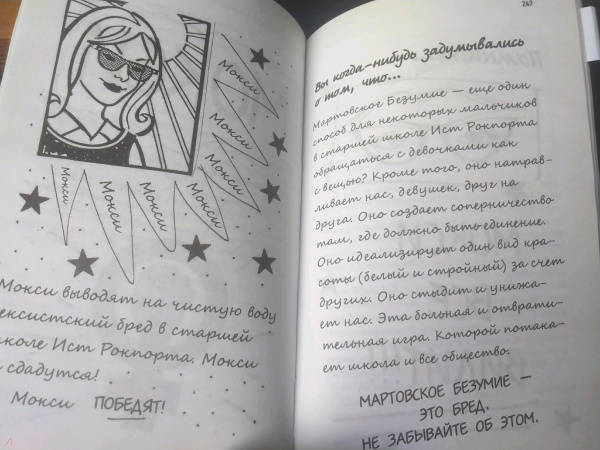 Мокси
Мокси
Мокси
Мокси
Мокси
Мокси
Мокси
Мокси
Мокси выводят на чистую воду
ексистский бред в старшей
школе Ист Рокпорта. Мокси
сдадутся!
Мокси ПОБЕДЯТ!
267
Вы когда-нибудь задумывались
о том, что...
Мартовское Безумие — еще один
способ для некоторых мальчиков
в старшей школе Ист Рокпорта
обращаться с девочками как
с вещью? Кроме того, оно натрав-
ливает нас, девушек, друг на
друга. Оно создает соперничество
там, где должно быть единение.
Оно идеализирует один вид кра-
соты (белый и стройный) за счет
других. Оно стыдит и унижа-
ет нас. Эта больная и отврати-
тельная игра. Которой потака-
ет школа и все общество.
МАРТОВСКОЕ БЕЗУМИЕ —
ЭТО БРЕД.
НЕ ЗАБЫВАЙТЕ ОБ ЭТОМ.